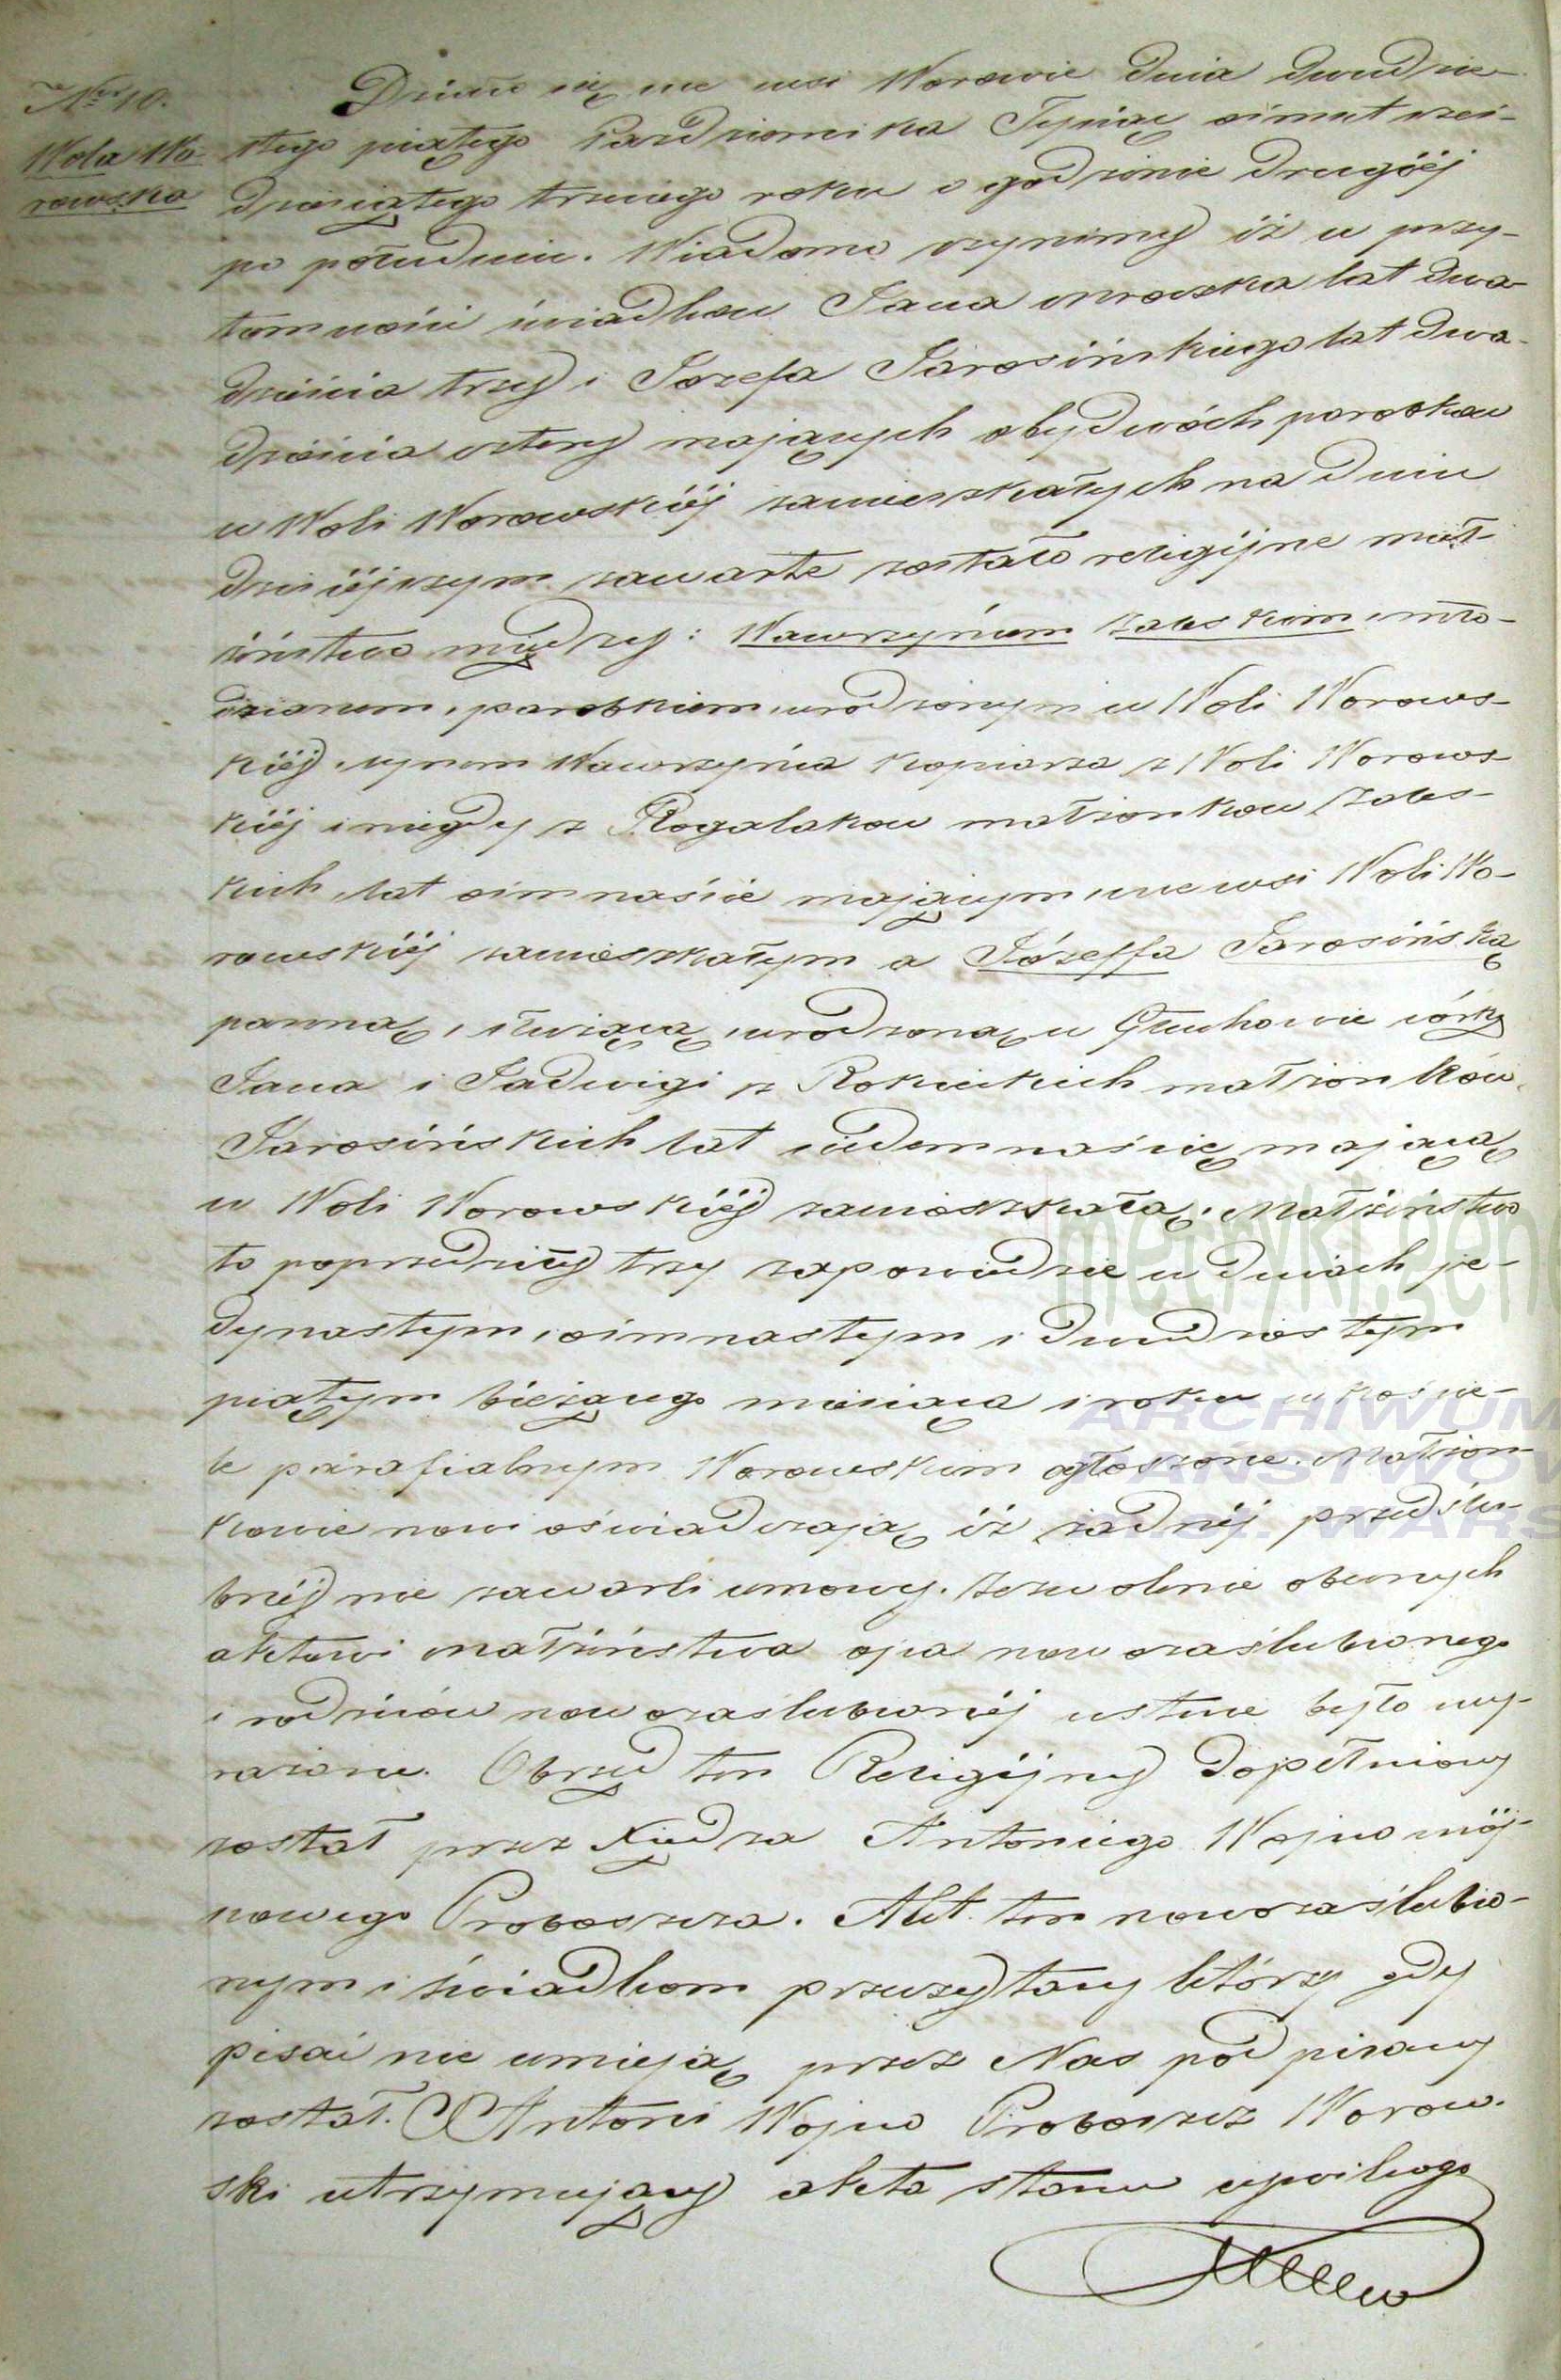 Nro 10.
Wola Wo-
rowska
Działo się we wsi Worowie dnia dwudzie-
stego piątego Października Tysiąc ośmset sześć-
dziesiątego trzeciego roku o godzinie drugiéj
po południu. Wiadomo czynimy iż w przy-
tomności świadków Jana Mroczka lat dwa-
dzieścia trzy i Józefa Jarosińskiego lat dwa-
dzieścia cztery mających obydwóch parobków
w Woli Worowskiéj zamieszkałych na dniu
dzisiéjszym zawarte zostało religijne mał-
żeństwo między: Wawrzyńcem mło-
dzianem, parobkiem, urodzonym w Woli Worows-
kiéj, synem Wawrzyńca z Woli Worows-
kiéj i niegdy z Rogalaków małżonków
kich, lat ośmnaście mającym, we wsi Woli Wo-
rowskiéj zamieszkałym a Józeffą Jarosińską
panną, służącą, urodzoną w Głuchowie córką
Jana i Jadwigi z Rokickich małżonków
Jarosińskich lat siedemnaście mającą
w Woli Worowskiéj zamieszkałą. Małżeństwo
to poprzedziły trzy zapowiedzie w dniach je-
dynastym, ośmnastym i dwudziestym
piątym bieżącego miesiąca i roku w koście-
le parafialnym Worowskim ogłoszone. Małżon-
kowie nowi oświadczają iż żadnéj przedślu-
bnéj nie zawarli umowy. Zezwolenie obecnych
aktowi małżeństwa ojca nowozaślubionego
i rodziców nowozaślubionéj ustnie było wy-
rażone. Obrzęd ten Religijny dopełniony
został przez Xiędza Antoniego Wojno miéj-
scowego Proboszcza. Akt ten nowozaślubio-
nym i świadkom przeczytany którzy gdy
pisać nie umieją przez Nas podpisany
został. X Antoni Wojno Proboszcz Worow-
ski utrzymujący akta stanu cywilnego
metryki.gen
ARCHIWUM
PAŃSTWOW
M.ST. WARS